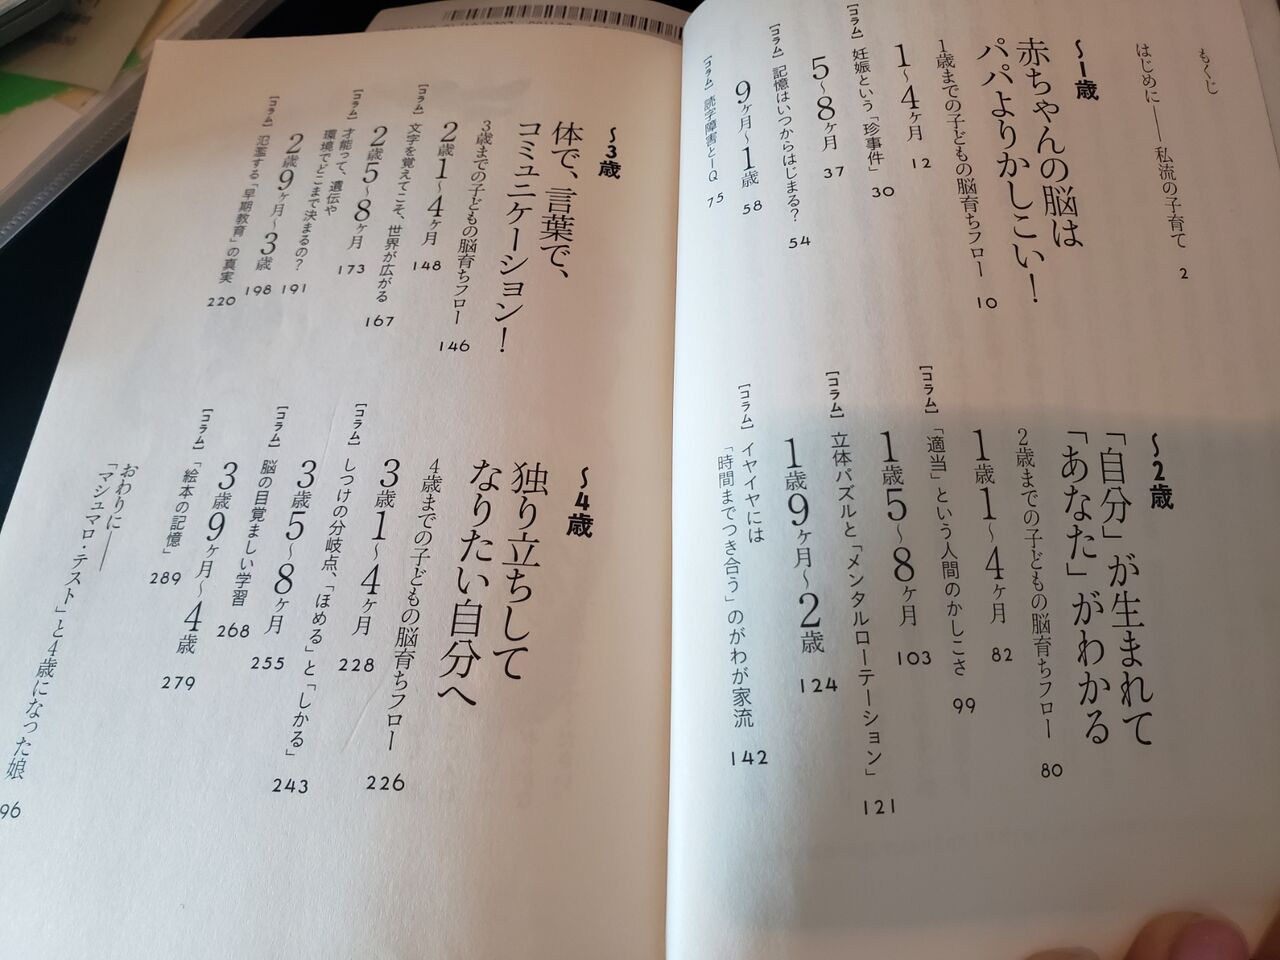 もくじ
はじめに――私流の子育て 2
〜1歳
赤ちゃんの脳は
パパよりかしこい！
1歳までの子どもの脳育ちフロー 10
1〜4ヶ月 12
［コラム］妊娠という「珍事件」 30
5〜8ヶ月 37
［コラム］記憶はいつからはじまる？ 54
9ヶ月〜1歳 58
［コラム］読字障害とIQ 75
〜2歳
「自分」が生まれて
「あなた」がわかる
2歳までの子どもの脳育ちフロー 80
1歳1〜4ヶ月 82
［コラム］「適当」という人間のかしこさ 99
1歳5〜8ヶ月 103
［コラム］立体パズルと「メンタルローテーション」 121
1歳9ヶ月〜2歳 124
［コラム］イヤイヤには
「時間までつき合う」のがわが家流 142
〜3歳
体で、言葉で、
コミュニケーション！
3歳までの子どもの脳育ちフロー 146
2歳1〜4ヶ月 148
［コラム］文字を覚えてこそ、世界が広がる 167
2歳5〜8ヶ月 173
［コラム］才能って、遺伝や
環境でどこまで決まるの？ 191
2歳9ヶ月〜3歳 198
［コラム］氾濫する「早期教育」の真実 220
〜4歳
独り立ちして
なりたい自分へ
4歳までの子どもの脳育ちフロー 226
3歳1〜4ヶ月 228
［コラム］しつけの分岐点、「ほめる」と「しかる」 243
3歳5〜8ヶ月 255
［コラム］脳の目覚ましい学習 268
3歳9ヶ月〜4歳 279
［コラム］「絵本の記憶」 289
おわりに――
「マシュマロ・テスト」と4歳になった娘 96